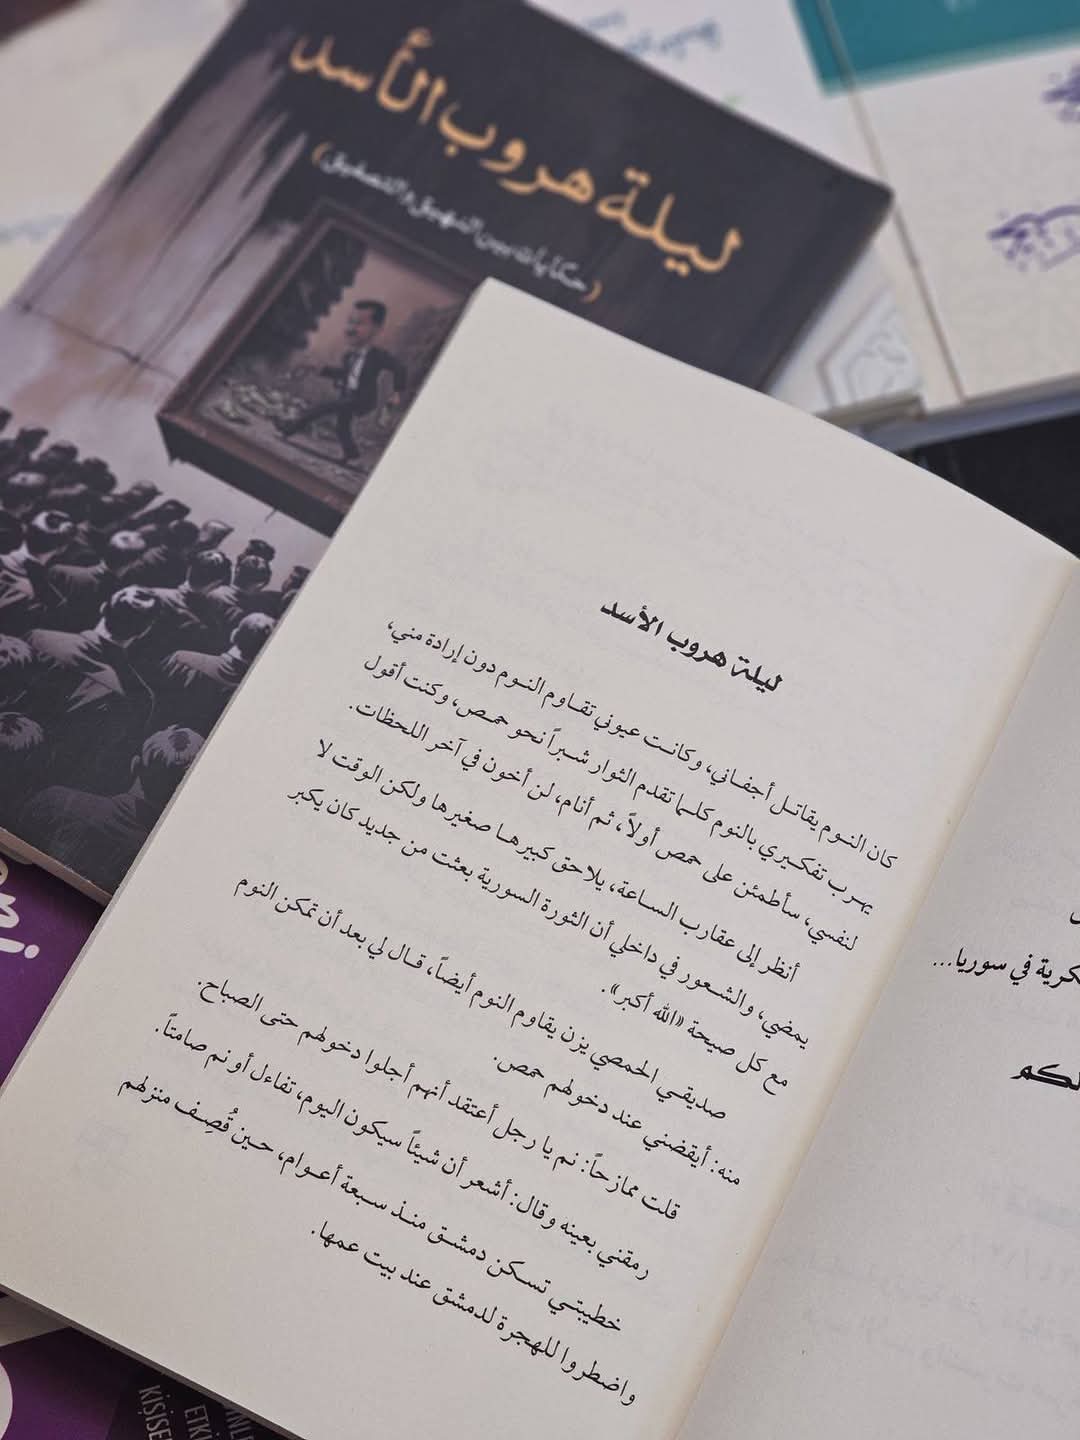 ليلة هروب الأسد
(حكايات بين النهيق والتصفيق)
ليلة هروب الأسد
كان النوم يقاتل أجفاني، وكانت عيوني تقاوم النوم دون إرادة مني،
يهرب تفكيري بالنوم كلما تقدم الثوار شبراً نحو حمص، وكنت أقول
لنفسي، سأطمئن على حمص أولاً، ثم أنام، لن أخون في آخر اللحظات.
أنظر إلى عقارب الساعة، يلاحق كبيرها صغيرها ولكن الوقت لا
يمضي، والشعور في داخلي أن الثورة السورية بعثت من جديد كان يكبر
مع كل صيحة «الله أكبر».
صديقي الحمصي يزن يقاوم النوم أيضاً، قال لي بعد أن تمكن النوم
منه: أيقضني عند دخولهم حمص.
قلت ممازحاً: نم يا رجل أعتقد أنهم أجلوا دخولهم حتى الصباح.
رمقني بعينه وقال: أشعر أن شيئاً سيكون اليوم، تفاءل أو نم صامتاً.
خطيبتي تسكن دمشق منذ سبعة أعوام، حين قُصِف منزلهم
واضطروا للهجرة لدمشق عند بيت عمها.
في سوريا...
KİŞİSE
ETKİ